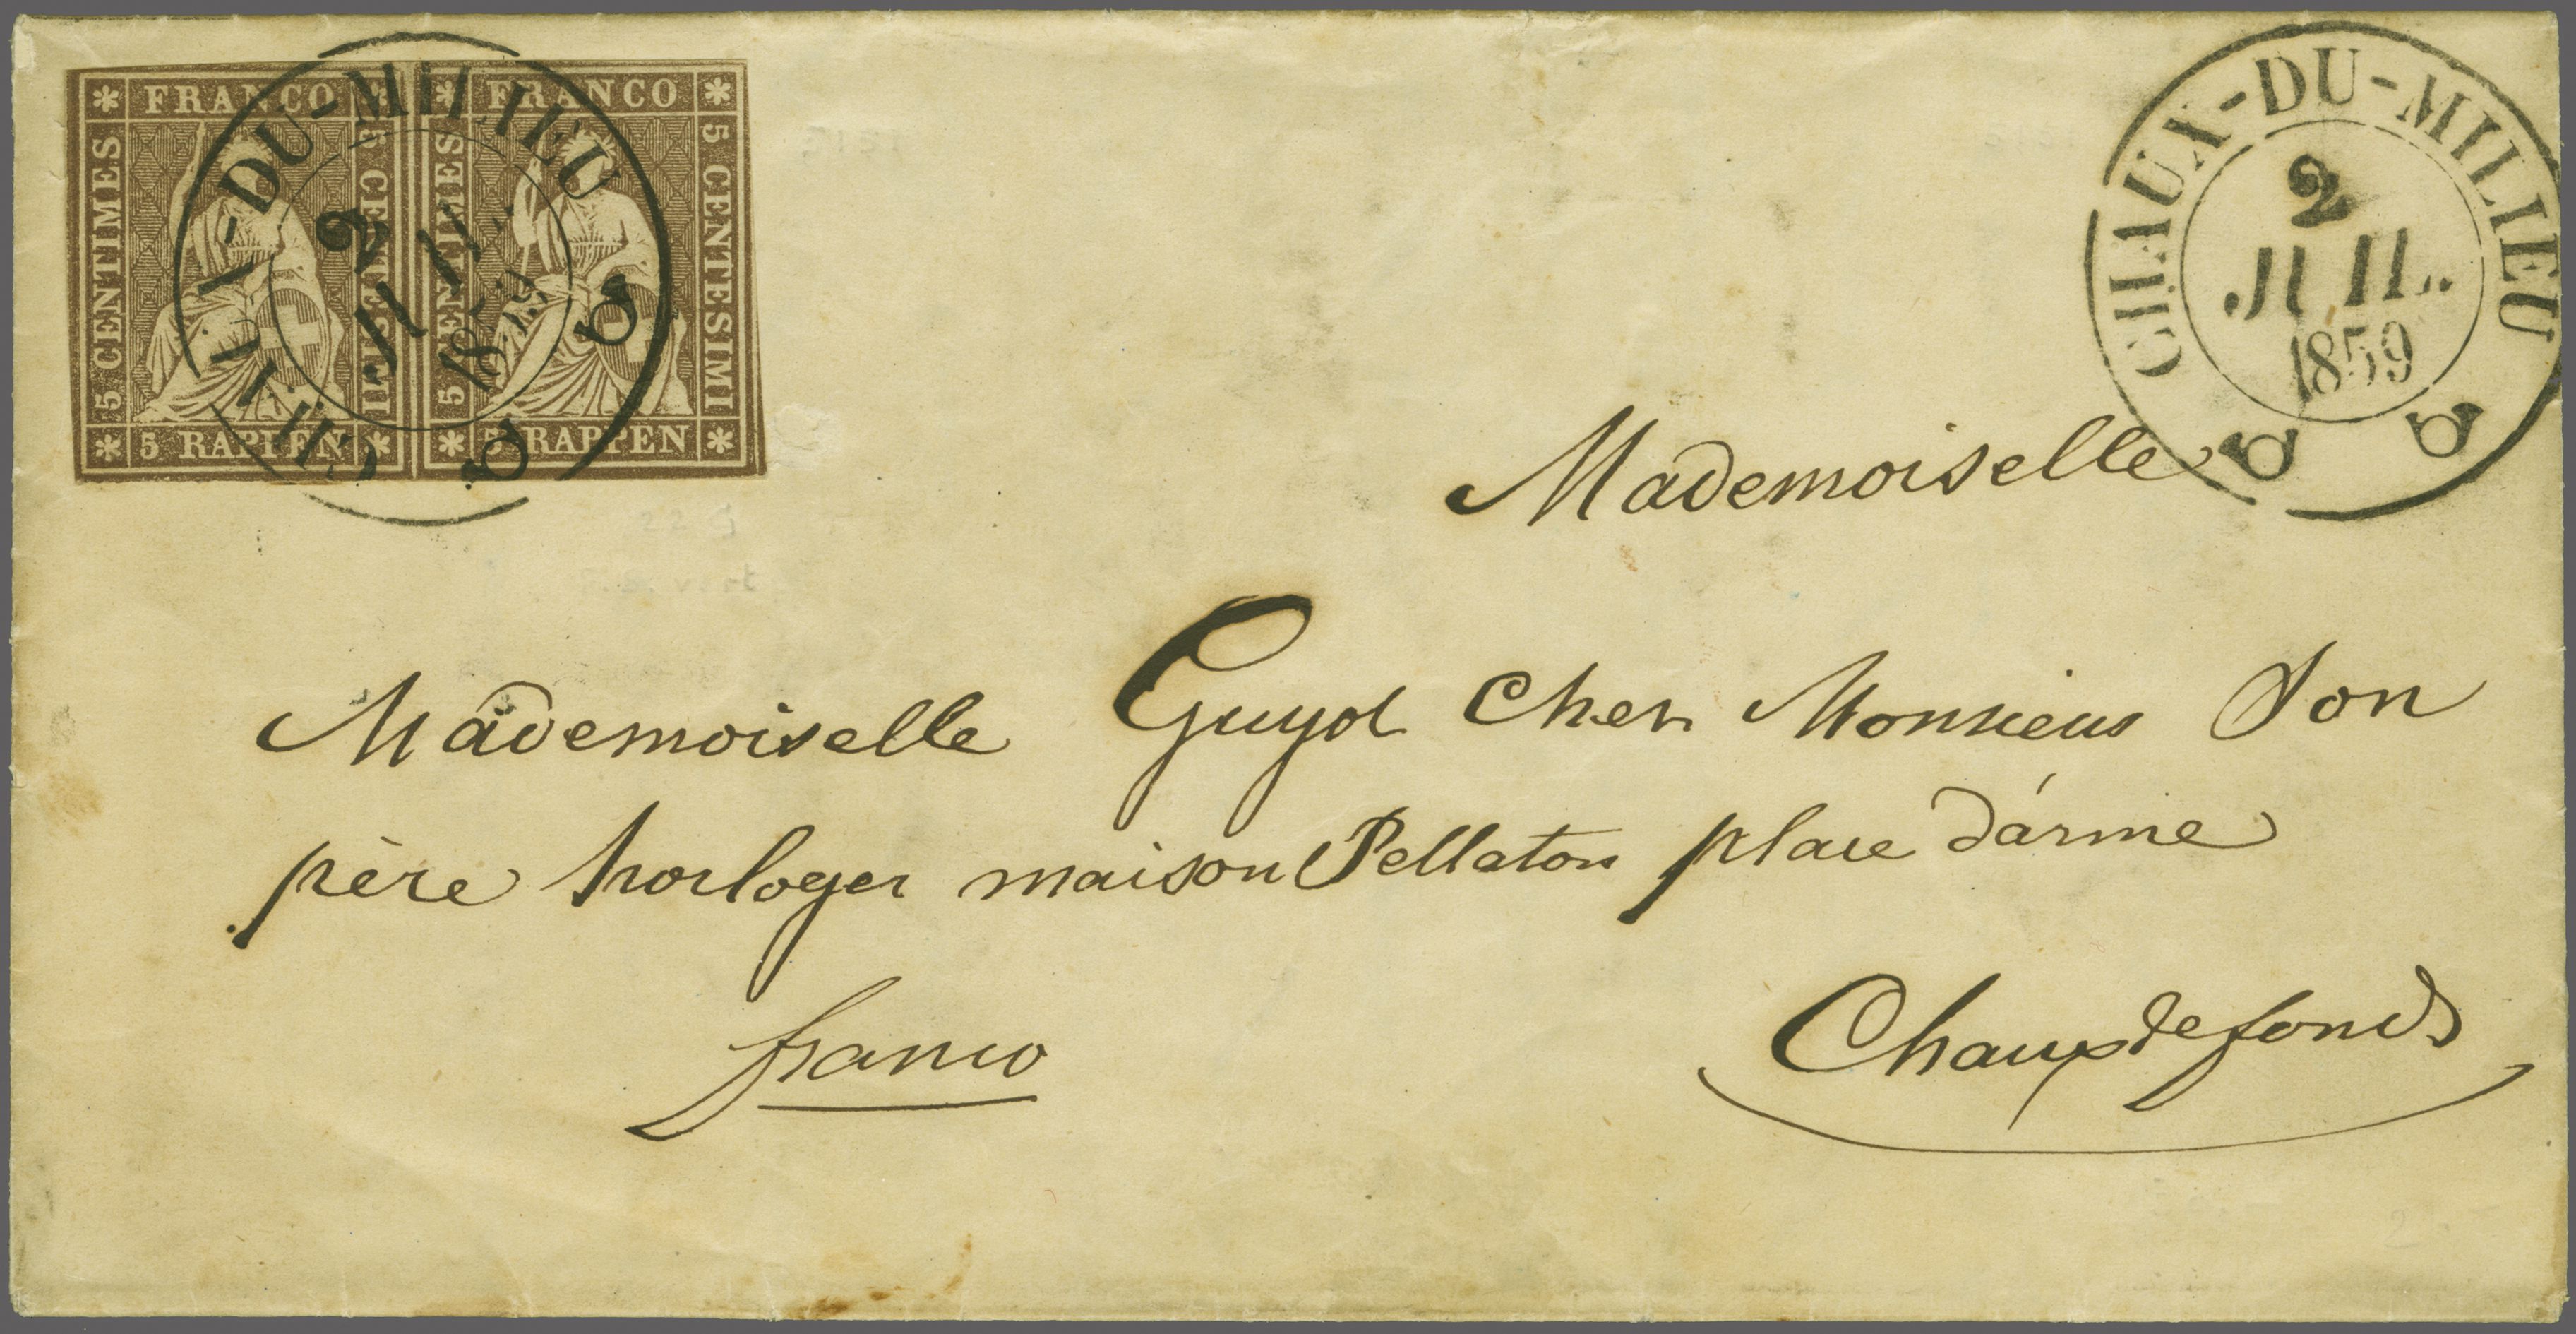 FRANCO
5 CENTIMES
5 CENTESIMI
5 RAPPEN
FRANCO
5 CENTIMES
5 CENTESIMI
5 RAPPEN
CHAUX-DU-MILIEU
2
JUIL.
1859
CHAUX-DU-MILIEU
2
JUIL.
1859
Mademoiselle
Mademoiselle Guyot Chez Monsieur Son
père horloger maison Pellaton place d'arme
franco
Chauxdefonds